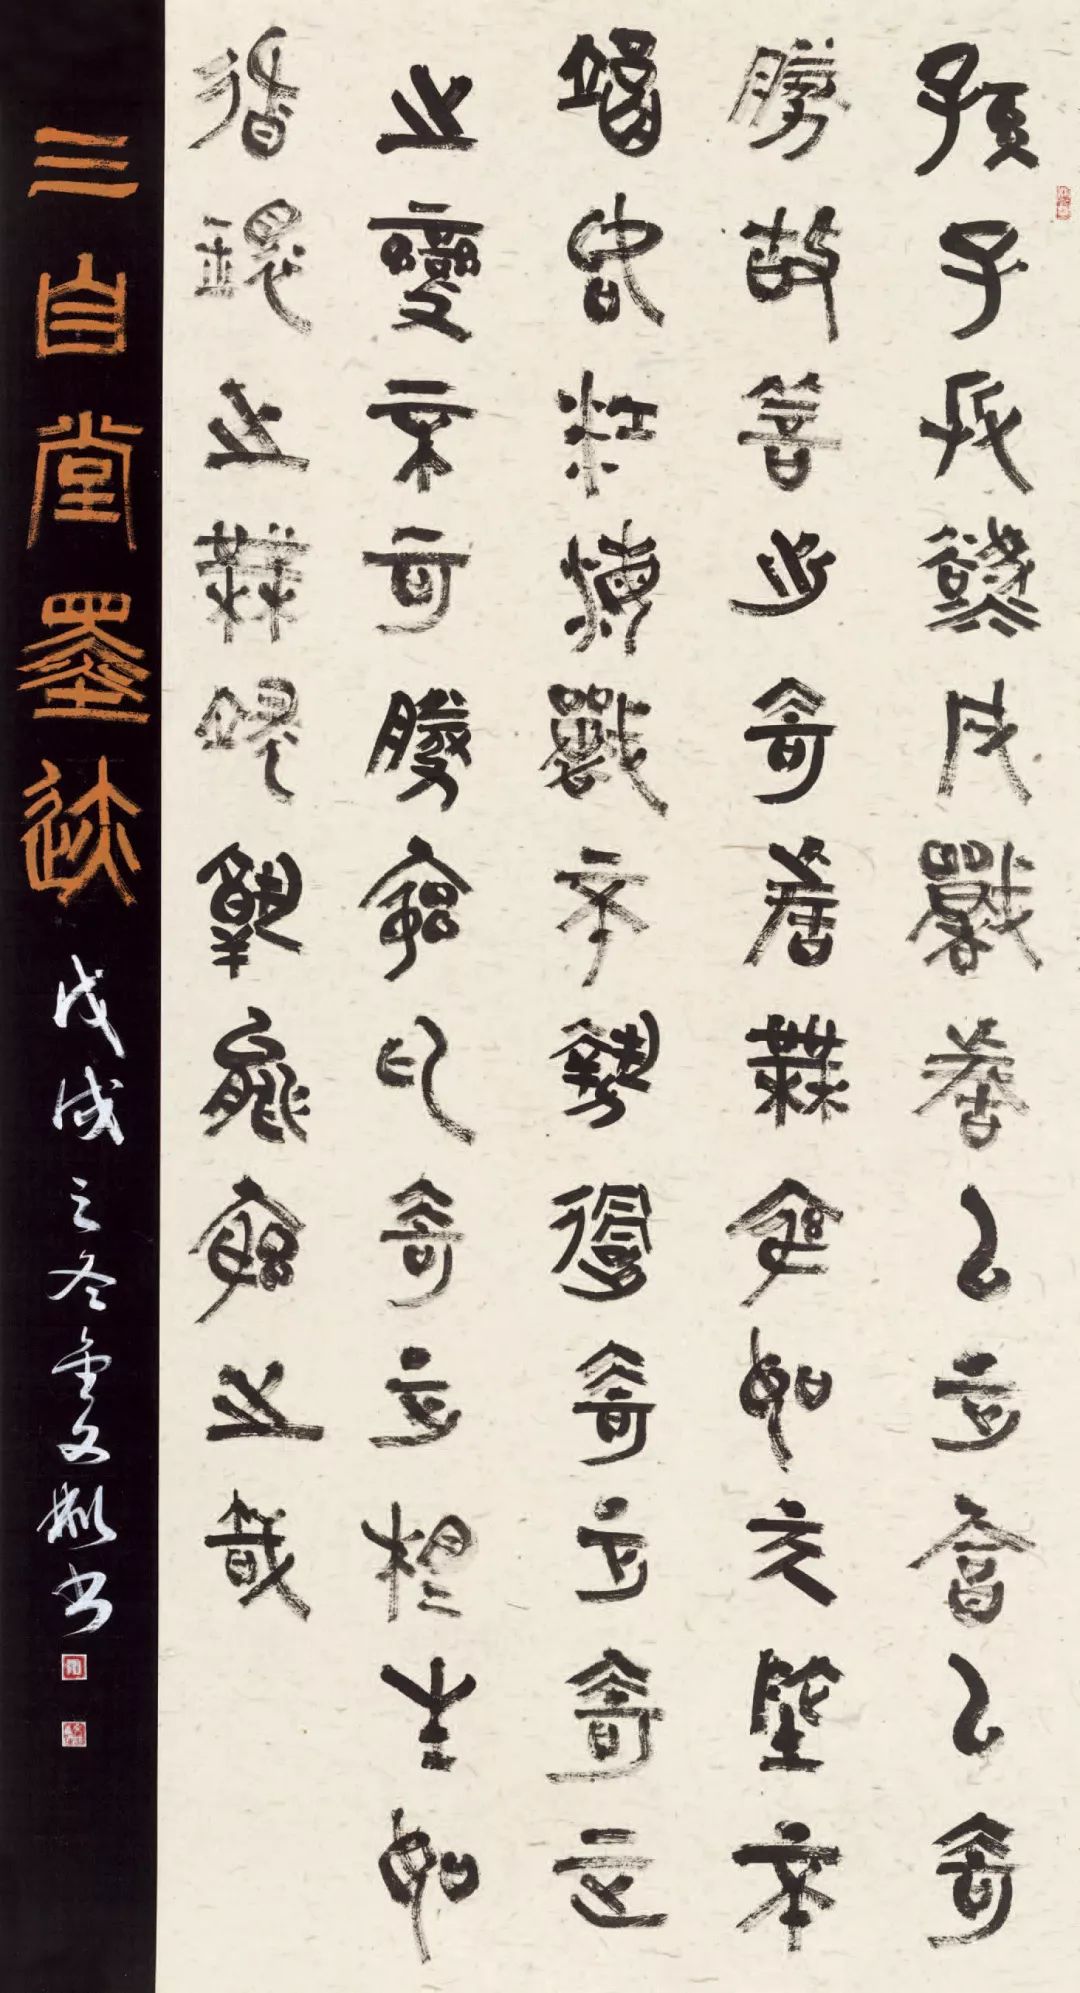 孫子兵勢凡戰者以正合以奇
勝故善出奇者無窮如天地不
竭江海戰不勢過奇正奇正
之變不可勝窮也奇正相生如
循環之無端孰能窮之哉
三自堂墨迹
戊戌之冬 书